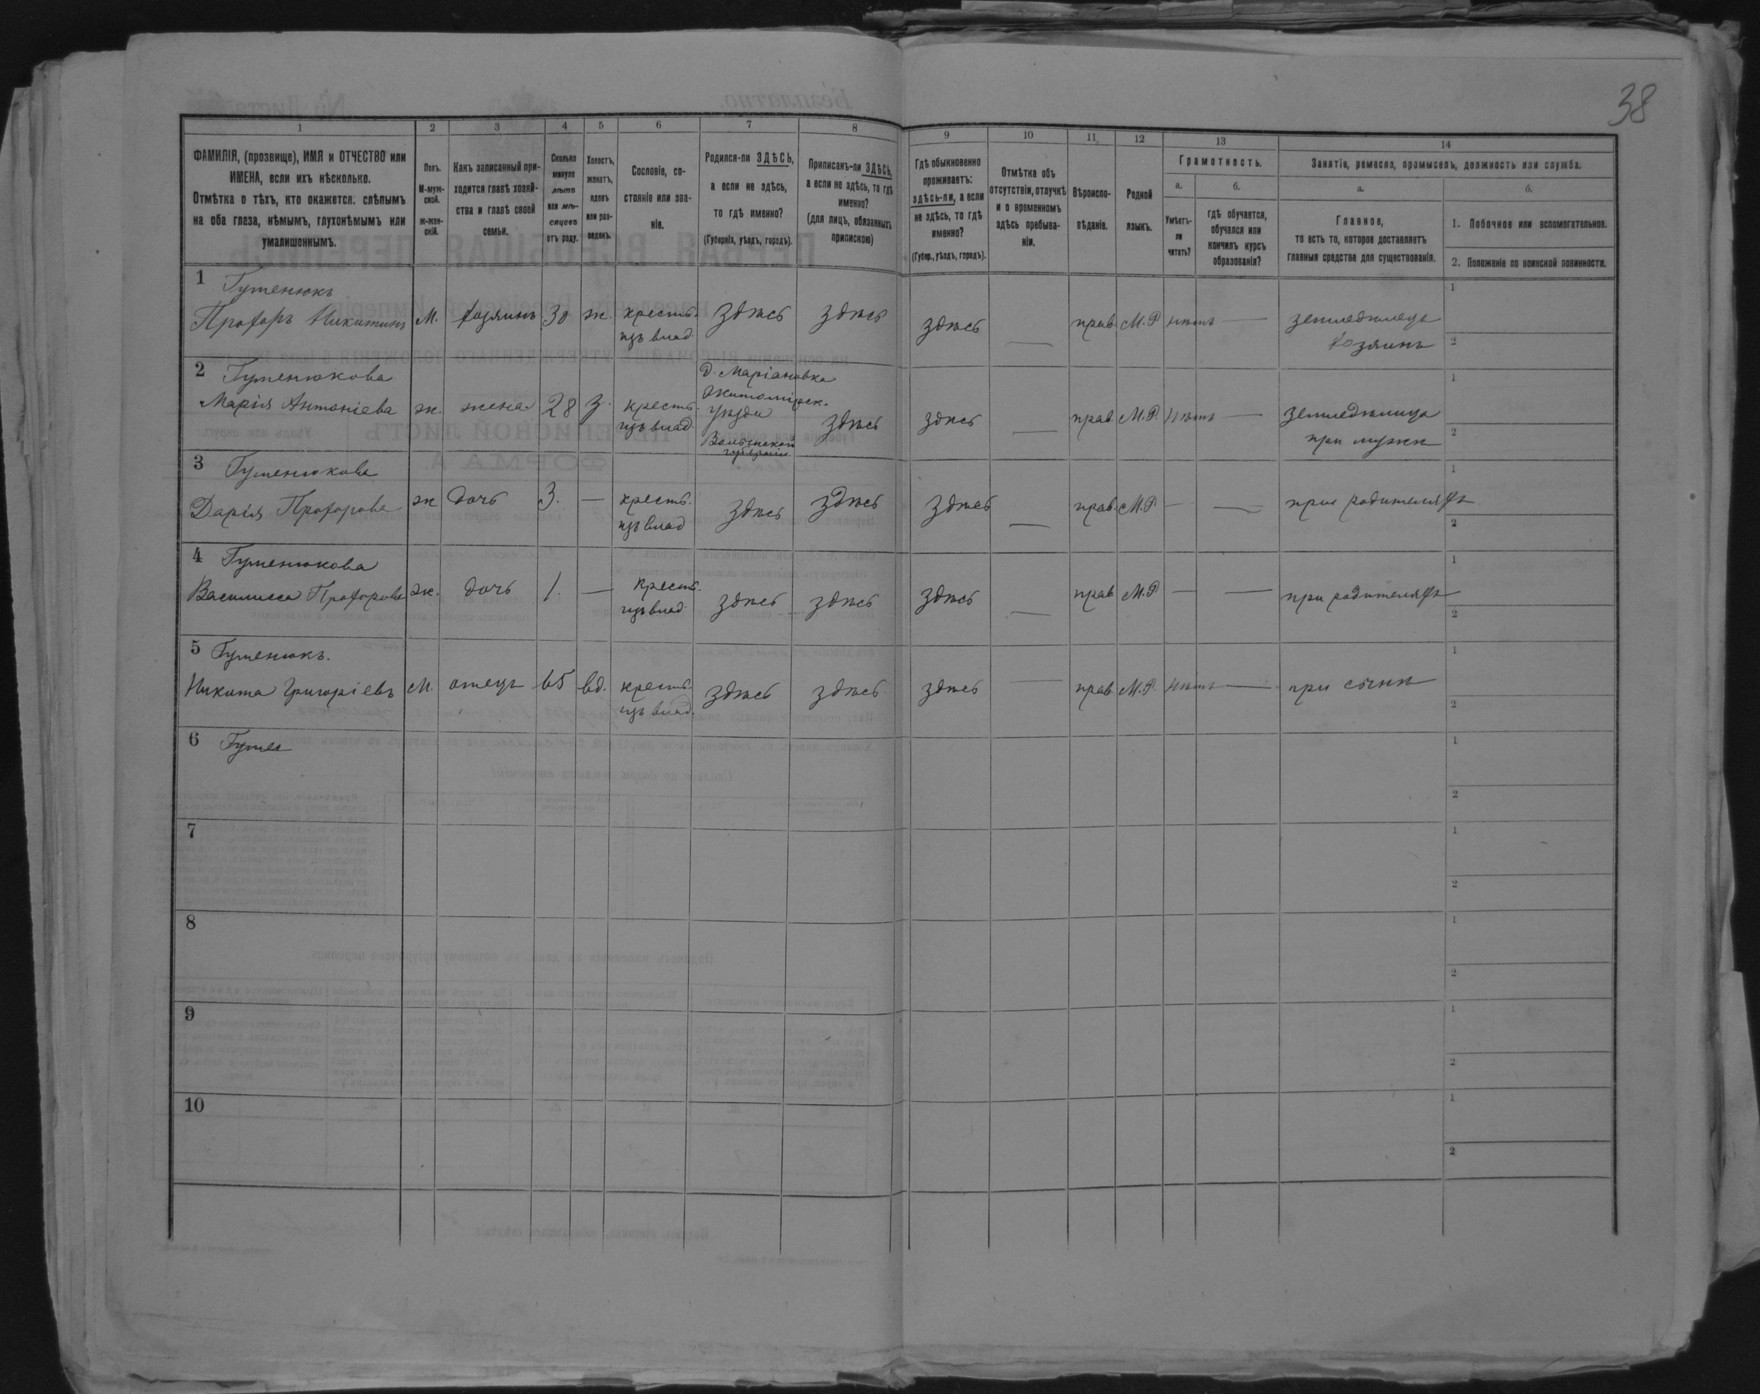 38
1 2 3 4 5 6 7 8 9 10 11 12 13 14
ФАМИЛІЯ, (прозвище), ИМЯ и ОТЧЕСТВО или
ИМЕНА, если ихъ нѣсколько.
Отмѣтка о тѣхъ, кто окажется: слѣпымъ
на оба глаза, нѣмымъ, глухонѣмымъ или
умалишоннымъ.
Полъ.
М-муж-
ской.
Ж-жен-
скій.
Какъ записанный при-
ходится главѣ хозяй-
ства и главѣ своей
семьи.
Сколько
минуло
лѣтъ
или мѣ-
сяцевъ
отъ роду.
Холостъ,
женатъ,
вдовъ
или раз-
веденъ.
Сословіе, со-
стояніе или зва-
ніе.
Родился-ли ЗДѢСЬ,
а если не здѣсь,
то гдѣ именно?
(Губернія, уѣздъ, городъ).
Приписанъ-ли ЗДѢСЬ,
а если не здѣсь, то гдѣ
именно?
(для лицъ, обязанныхъ
припискою)
Гдѣ обыкновенно
проживаетъ:
здѣсь-ли, а если
не здѣсь, то гдѣ
именно?
(Губер., уѣздъ, городъ).
Отмѣтка объ
отсутствіи, отлучкѣ
и о временномъ
здѣсь пребыва-
ніи.
Вѣроиспо-
вѣданіе.
Родной
языкъ.
Грамотность.
а.
Умѣетъ-
ли
читать?
б.
гдѣ обучается,
обучался или
кончилъ курсъ
образованія?
Занятіе, ремесло, промыселъ, должность или служба.
а.
Главное,
то есть то, которое доставляетъ
главныя средства для существованія.
б.
1. Побочное или вспомогательное.
2. Положеніе по воинской повинности.
1 Гуменюкъ
Прохоръ Никитинъ М. хозяинъ 30 ж. крест. здѣсь здѣсь здѣсь — прав. М.Р нѣтъ — земледѣлецъ 1
изъ влад. хозяинъ 2
2 Гуменюкова Д. Маріановка 1
Житомірск.
Марія Антоніева ж. жена 28 з. крест. Уѣзда здѣсь здѣсь — прав М.Р нѣтъ — земледѣлица
изъ влад. Волынской при мужѣ 2
губерніи
3 Гуменюкова 1
Дарія Прохорова ж дочь 3. — крест. здѣсь здѣсь здѣсь — прав. М.Р. — — при родителяхъ
изъ влад 2
4 Гуменюкова 1
Василисса Прохорова ж. дочь 1. — крест. здѣсь здѣсь здѣсь — прав М.Р — — при родителяхъ
изъ влад. 2
5 Гуменюкъ. 1
Никита Григоріевъ М. отецъ 65 вд. крест. здѣсь здѣсь здѣсь — прав. М.Р. нѣтъ — при сынѣ
изъ влад. 2
6 Гуме 1
2
7 1
2
8 1
2
9 1
2
10 1
2